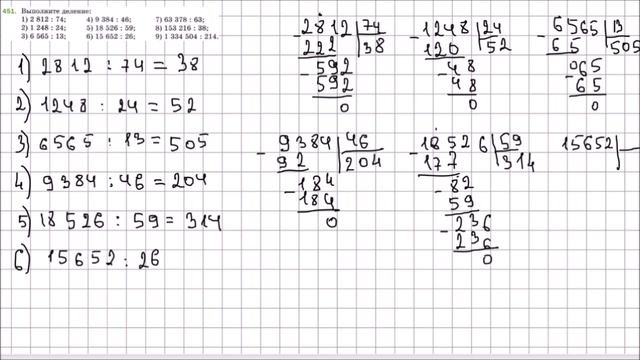 451. Выполните деление:
1) 2 812 : 74; 4) 9 384 : 46; 7) 63 378 : 63;
2) 1 248 : 24; 5) 18 526 : 59; 8) 153 216 : 38;
3) 6 565 : 13; 6) 15 652 : 26; 9) 1 334 504 : 214.
1) 2812 : 74 = 38
2) 1248 : 24 = 52
3) 6565 : 13 = 505
4) 9384 : 46 = 204
5) 18526 : 59 = 314
6) 15652 : 26
- 2812 74
222 38
- 592
592
0
- 1248 24
120 52
- 48
48
0
- 6565 13
65 505
065
- 65
0
- 9384 46
92 204
- 184
184
0
- 18526 59
177 314
- 82
59
- 236
236
0
15652